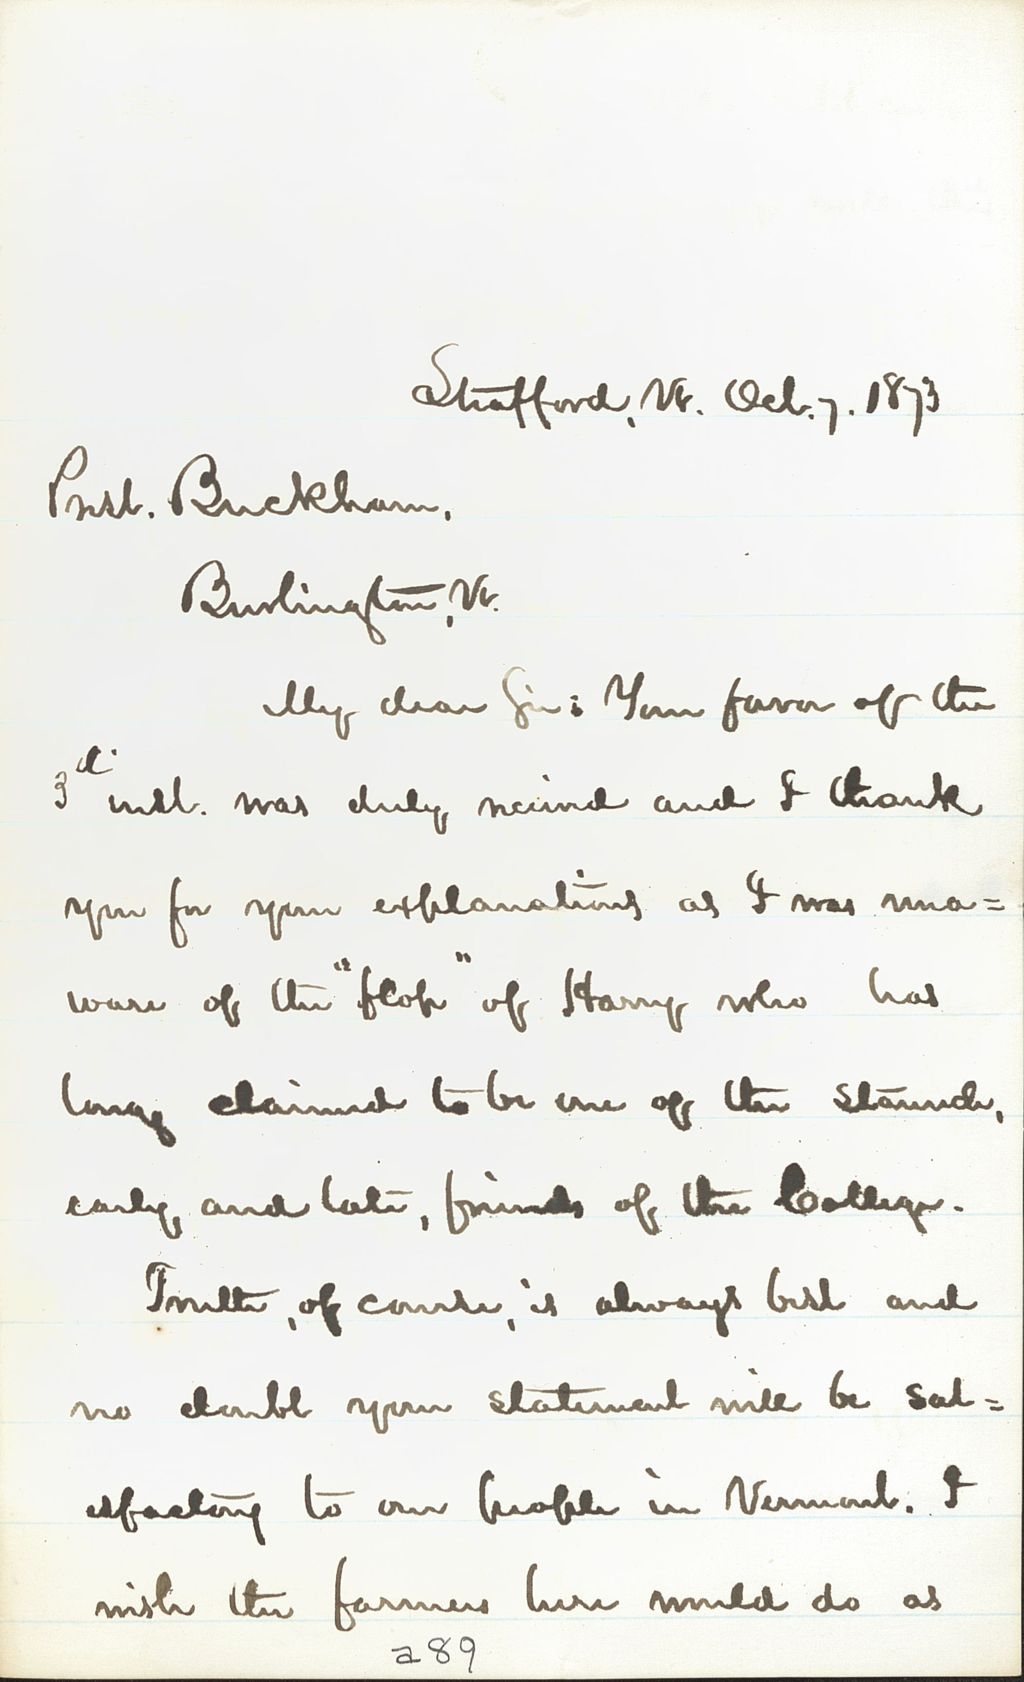 Strafford, Vt. Oct. 7. 1873
Prest. Buckham,
Burlington, Vt.
My dear Sir: Your favor of the
3d inst. was duly received and I thank
you for your explanations as I was una=
ware of the "flop" of Harry who has
long claimed to be one of the staunch,
early, and late, friends of the College.
Truth, of course, is always best and
no doubt your statement will be sat=
isfactory to our people in Vermont. I
wish the farmers here would do as
a89